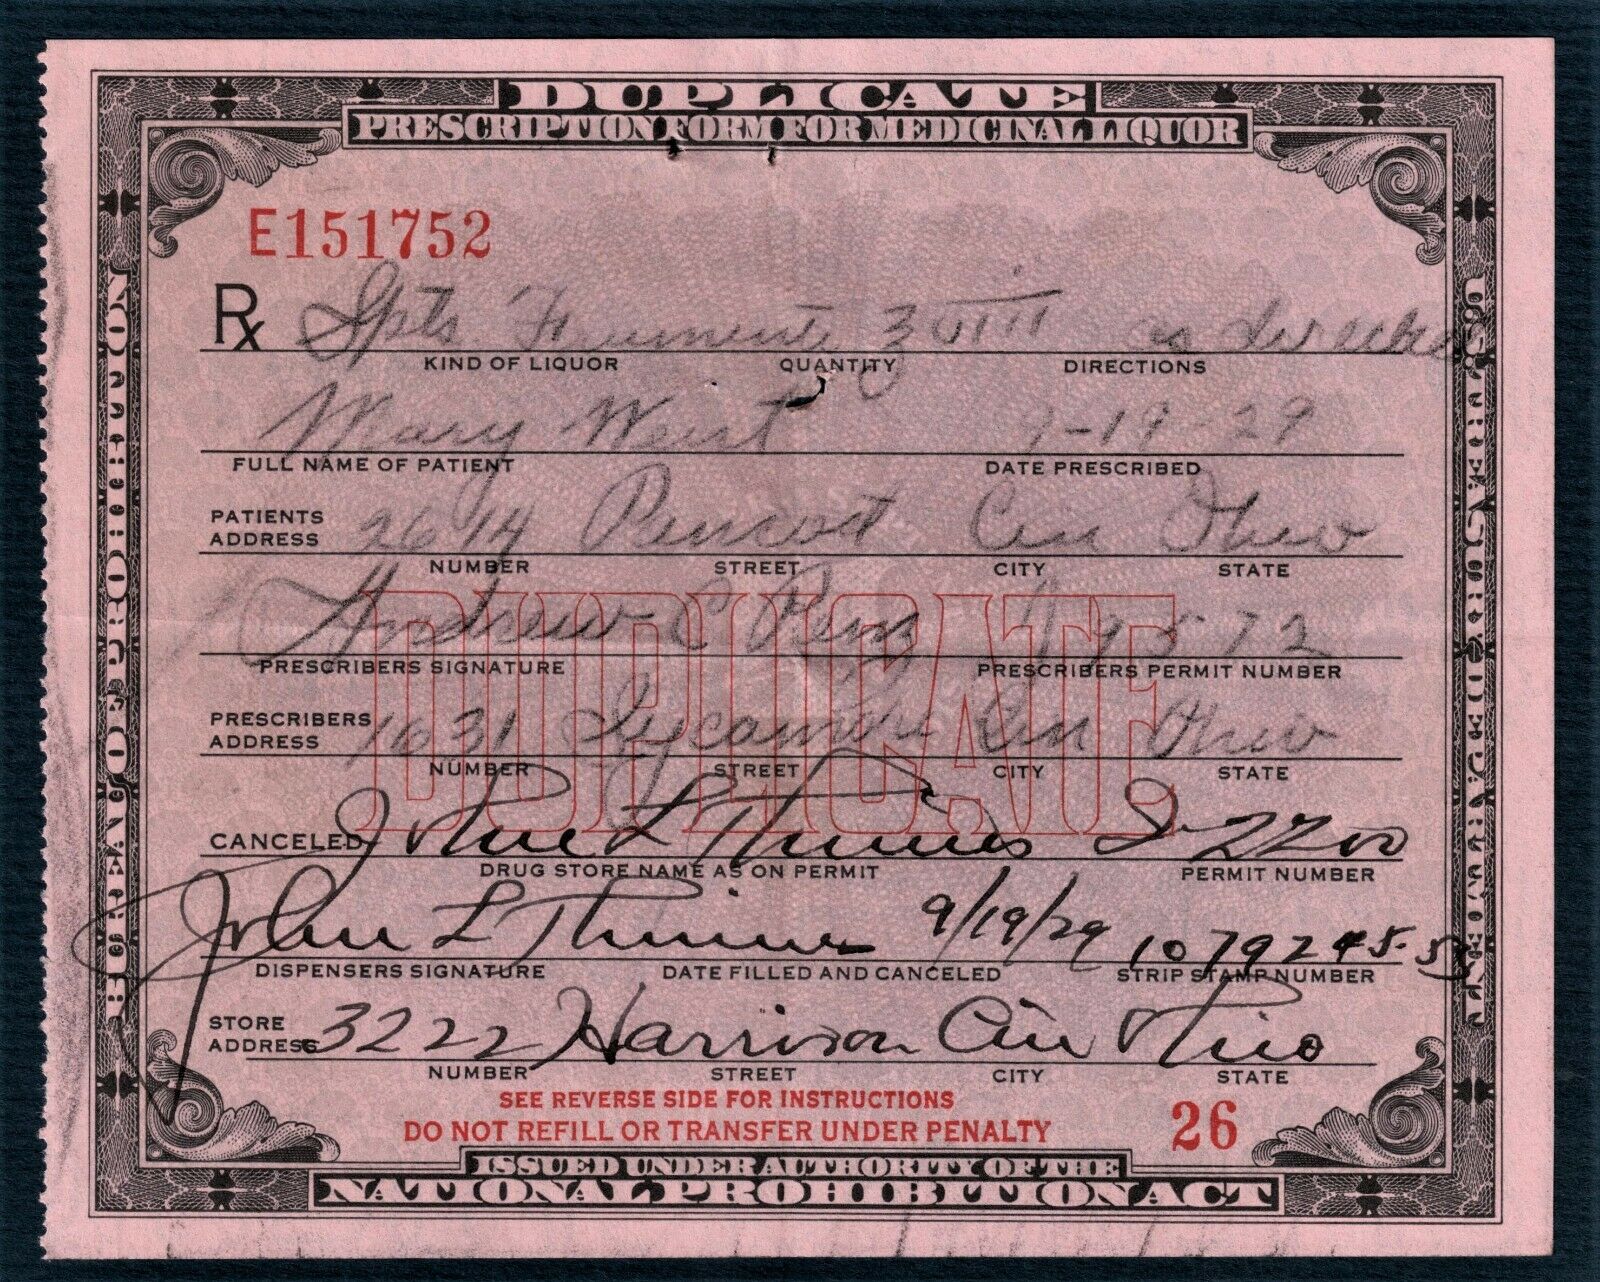 DUPLICATE
PRESCRIPTION FORM FOR MEDICINAL LIQUOR
E151752
Rx Spts Frumenti ℥ viii as directed
KIND OF LIQUOR QUANTITY DIRECTIONS
Mary 9-19-29
FULL NAME OF PATIENT DATE PRESCRIBED
PATIENTS ADDRESS 2614 Cin Ohio
NUMBER STREET CITY STATE
DUPLICATE
Andrew C
PRESCRIBERS SIGNATURE PRESCRIBERS PERMIT NUMBER
PRESCRIBERS ADDRESS 1631 Sycamore Cin Ohio
NUMBER STREET CITY STATE
CANCELED John L
DRUG STORE NAME AS ON PERMIT PERMIT NUMBER
John L 9/19/29
DISPENSERS SIGNATURE DATE FILLED AND CANCELED STRIP STAMP NUMBER
STORE ADDRESS 3222 Harrison Cin Ohio
NUMBER STREET CITY STATE
SEE REVERSE SIDE FOR INSTRUCTIONS
DO NOT REFILL OR TRANSFER UNDER PENALTY 26
ISSUED UNDER AUTHORITY OF THE
NATIONAL PROHIBITION ACT
BUREAU OF PROHIBITION
U.S. TREASURY DEPARTMENT